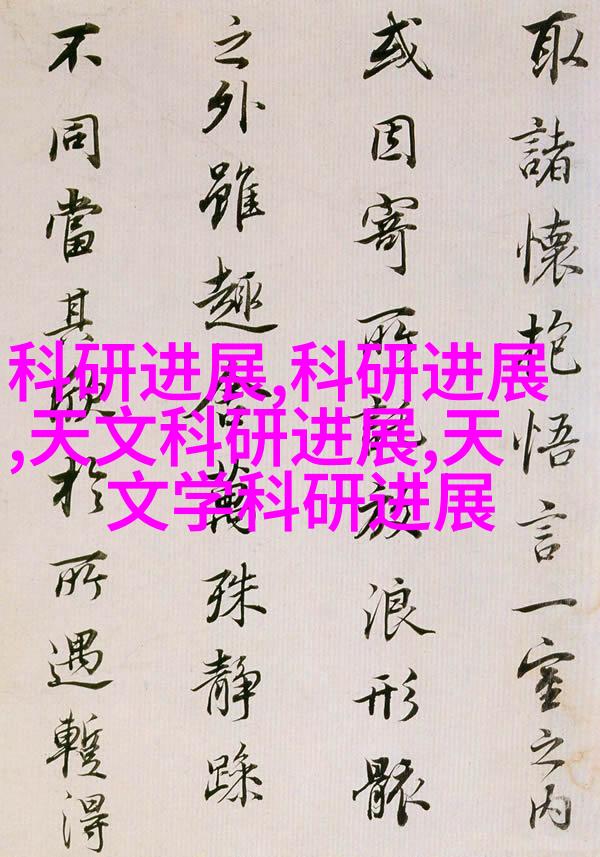 取諸懷抱悟言一室之内
或因寄所託放浪形骸
之外雖趣舍萬殊靜躁
不同當其欣於所遇蹔得
科研进展,科研进展
,天文科研进展,天
文学科研进展